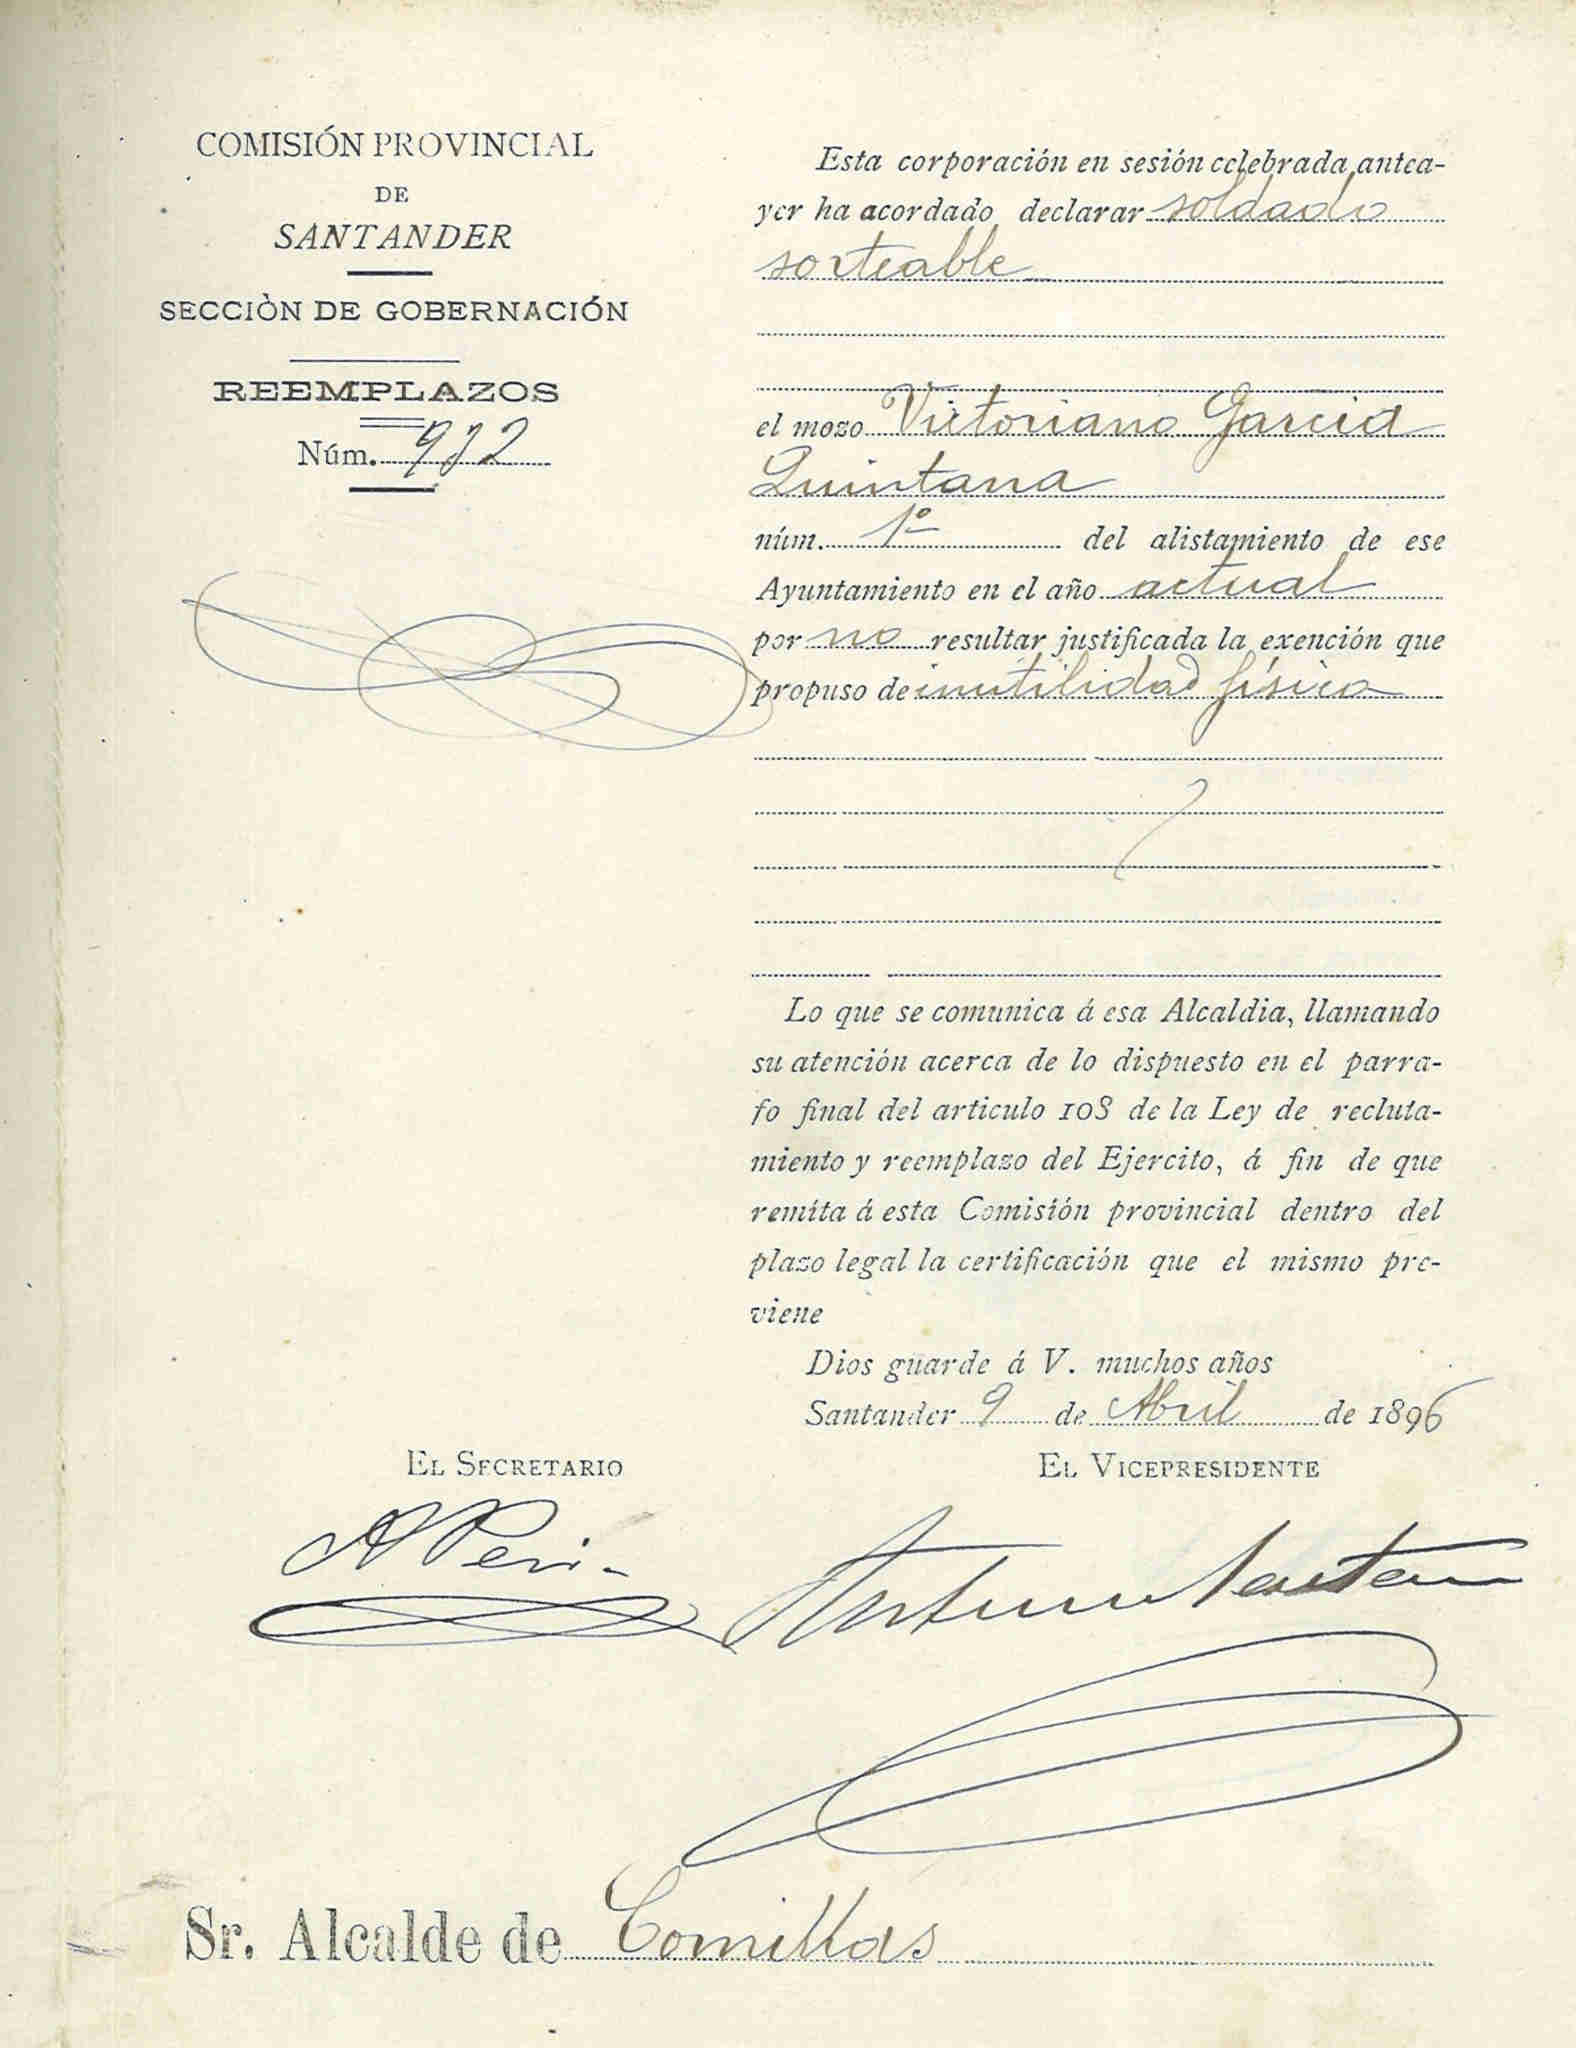 COMISIÓN PROVINCIAL
DE
SANTANDER
SECCIÒN DE GOBERNACIÓN
REEMPLAZOS
Núm. 932
Esta corporación en sesión celebrada antea-
yer ha acordado declarar soldado
sorteable
el mozo Victoriano Garcia
Quintana
núm. 1º del alistamiento de ese
Ayuntamiento en el año actual
por no resultar justificada la exención que
propuso de inutilidad física
Lo que se comunica á esa Alcaldia, llamando
su atención acerca de lo dispuesto en el parra-
fo final del articulo 108 de la Ley de recluta-
miento y reemplazo del Ejercito, á fin de que
remita á esta Comisión provincial dentro del
plazo legal la certificación que el mismo pre-
viene
Dios guarde á V. muchos años
Santander 9 de Abril de 1896
EL SECRETARIO
EL VICEPRESIDENTE
A Peri
Arturo
Sr. Alcalde de Comillas